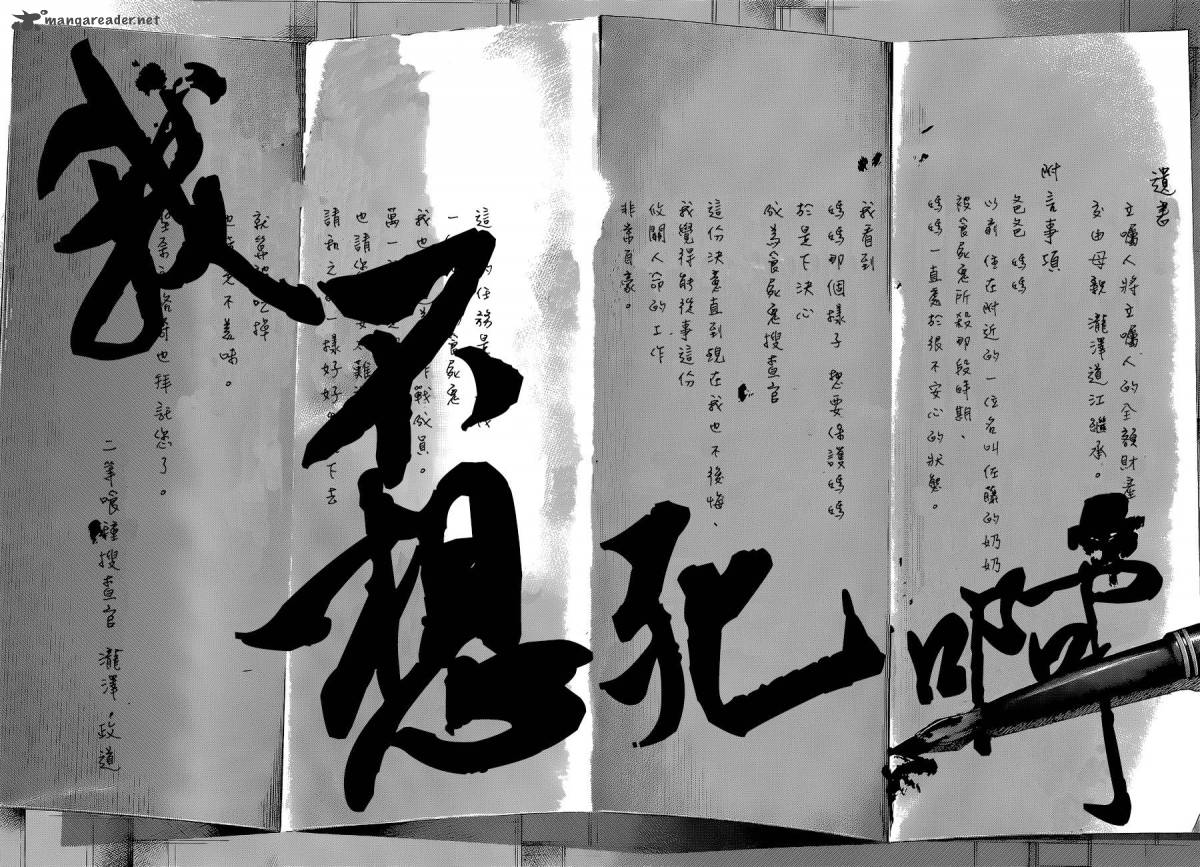 mangareader.net
遺書
立囑人將立囑人的全額財產
交由母親 瀧澤道江繼承。
附言事項
爸爸 媽媽
以前住在附近的一位名叫佐藤的奶奶
被食屍鬼所殺那段時期、
媽媽一直處於很不安心的狀態。
我看到
媽媽那個樣子 想要保護媽媽
於是下決心
成為食屍鬼搜查官
這份決意直到現在我也不後悔、
我覺得能從事這份
攸關人命的工作
非常自豪。
這 的任務是
一 食屍鬼
我也 作戰成員。
萬一
也請您 難
請和之 一樣好好 下去
就算被吃掉
也 不美味。
也拜託您了。
二等喰種搜查官 瀧澤 政道
我不想死啊